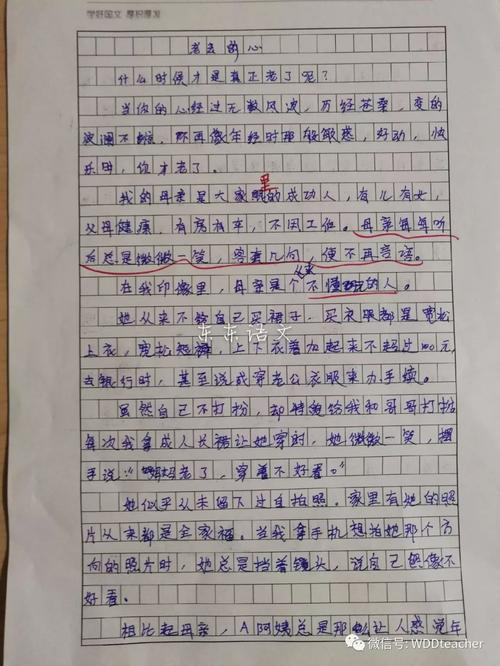 学好国文 厚积厚发
老去的心
什么时候才是真正老了呢?
当你的心经过无数风波,历经苍桑,变的
波澜不惊,不再像年轻时那般敏感,好动,快
乐时,你才老了。
我的母亲是大家眼里的成功人,有儿有女,
父母健康,有房有车,不用工作。母亲每每听
后总是微微一笑,寒暄几句,便不再言语。
在我印像里,母亲是个从来不懂的人。
她从来不给自己买裙子,买衣服都是宽松
上衣,宽松短裤,上下衣着加起来不超过100元,
去银行时,甚至说成穿老公衣服来办手续。
虽然自己不打扮,却特爱给我和哥哥打扮
每次我拿成人长裙让她穿时,她微微一笑,摆
手说:“妈妈老了,穿着不好看。”
她似乎从未留下过自拍照。家里有她的照
片从来都是全家福。当我拿手机想拍她那个方
向的照片时,她总是挡着镜头,说自己像不
好看。
相比起母亲,A阿姨总是那么让人感觉年
东东语文
微信号: WDDteacher